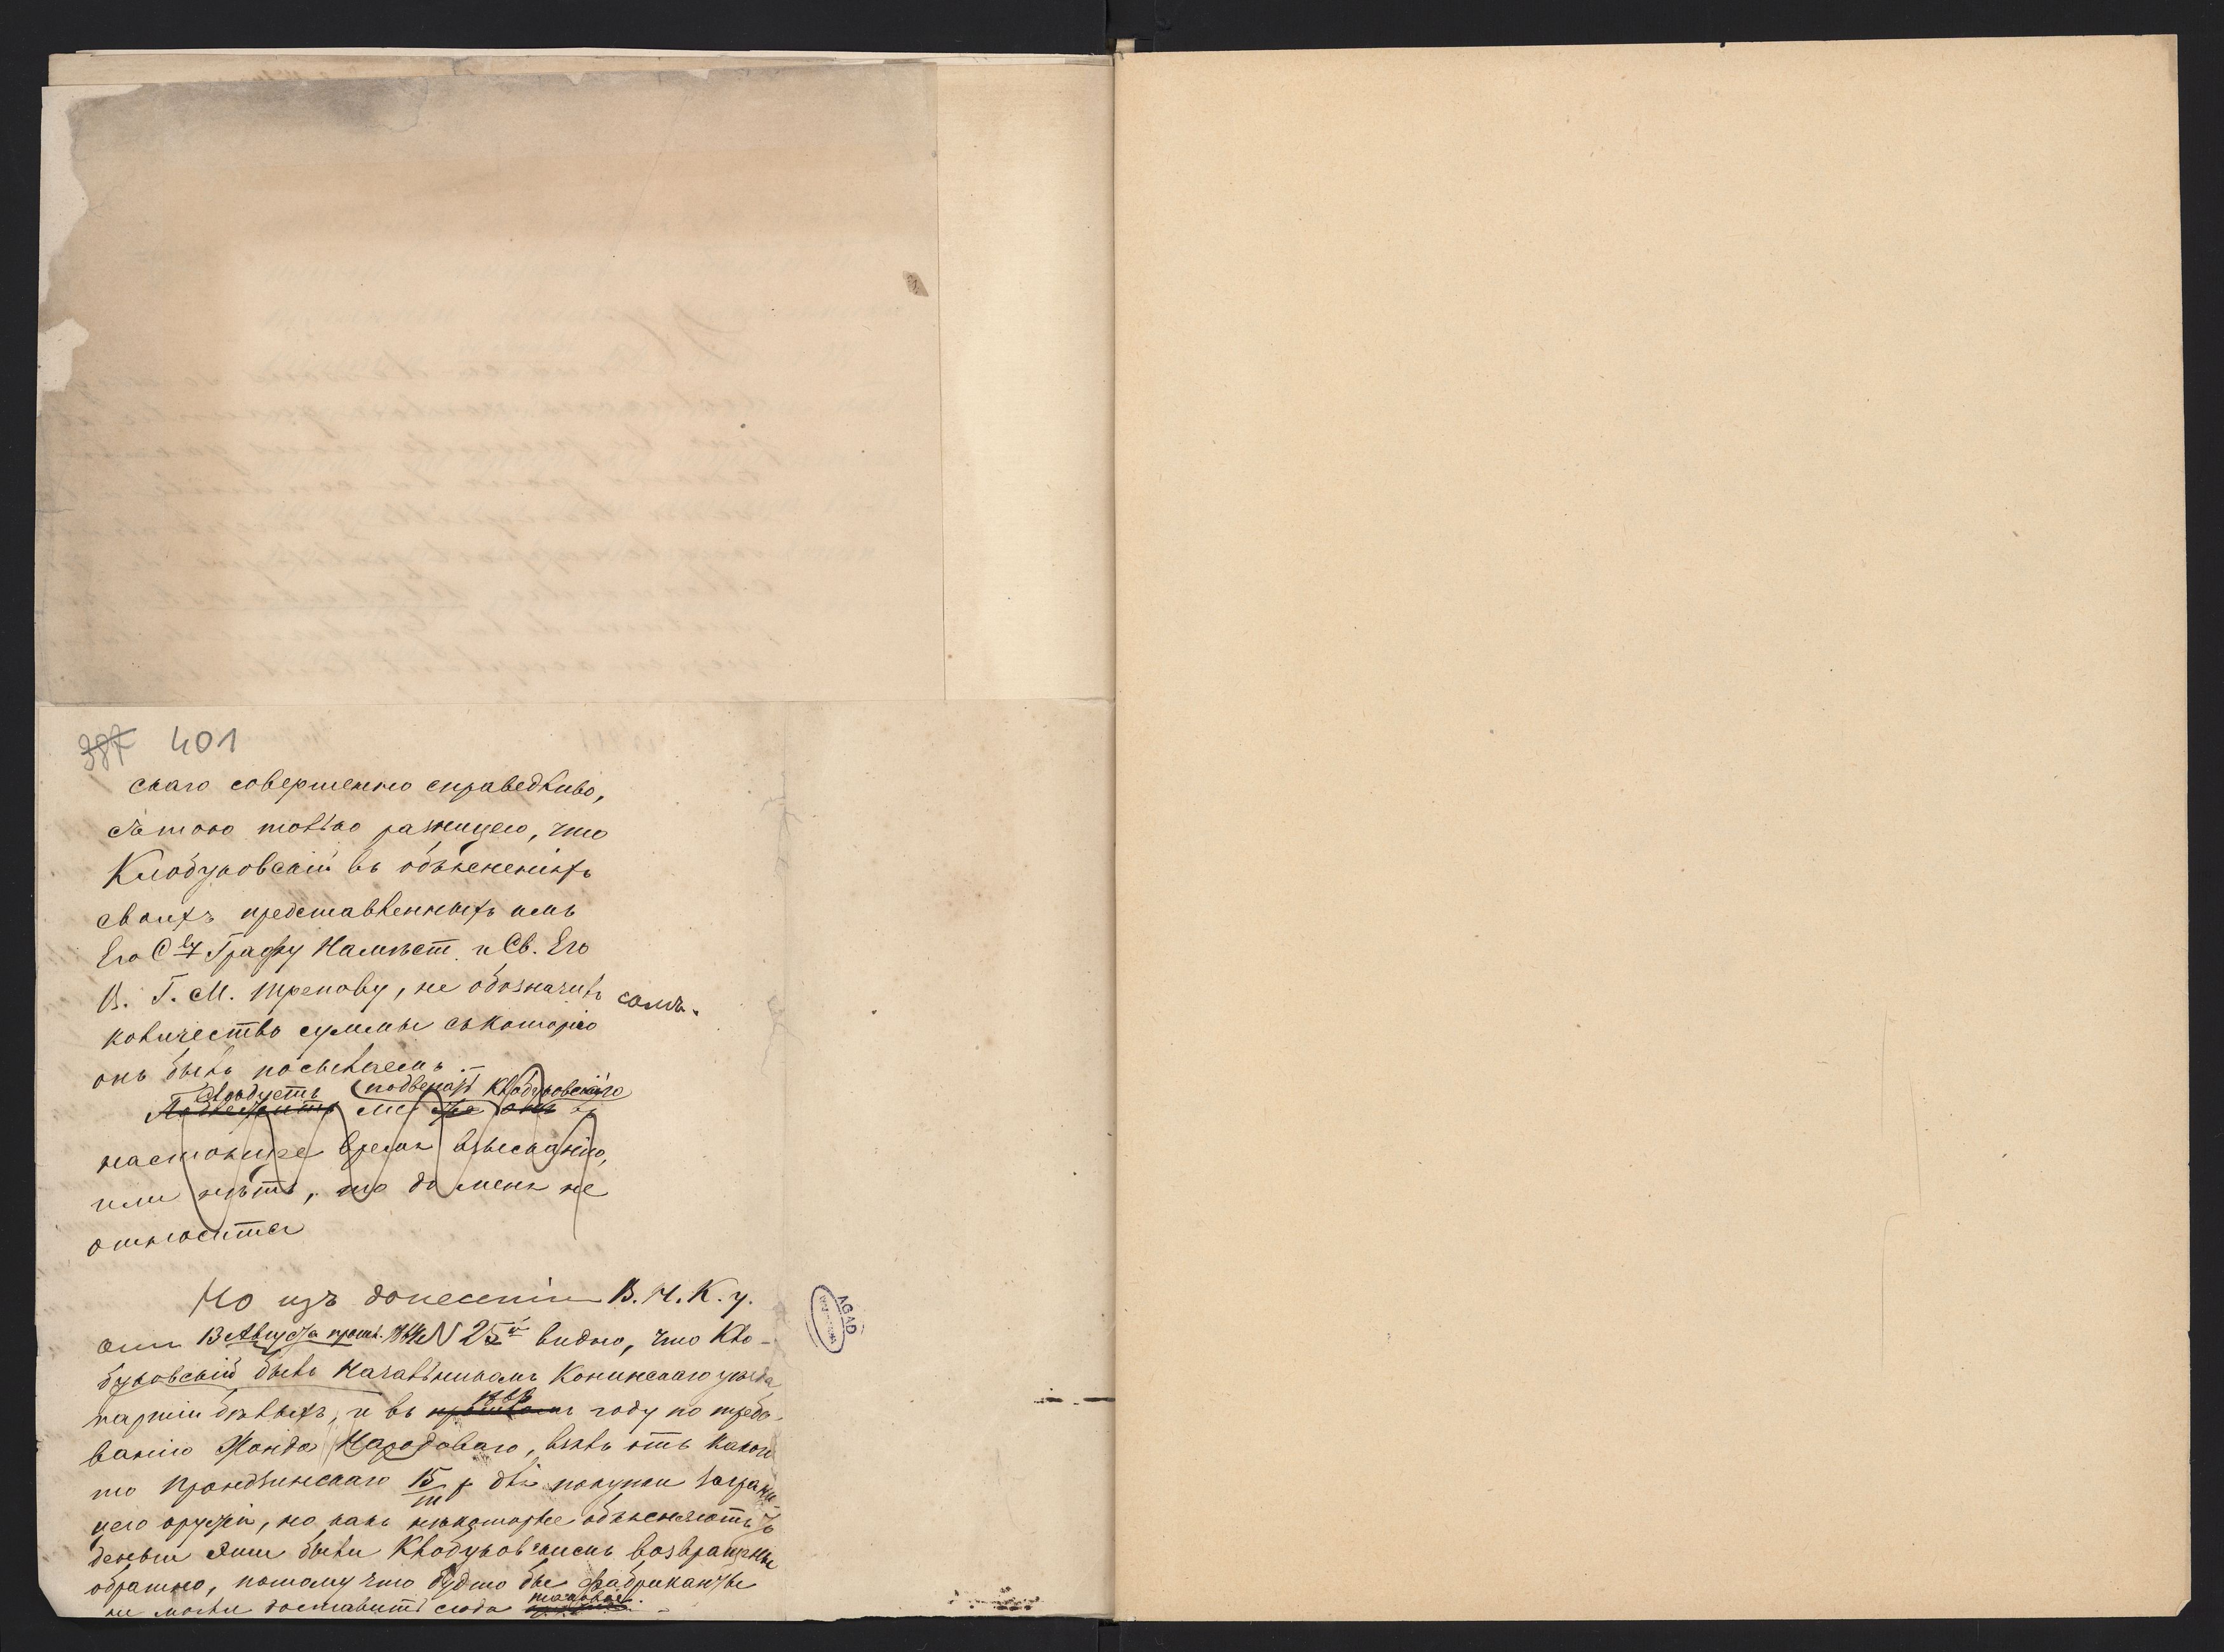 387 401
скаго совершенно справедливо,
съ тою только разницею, что
Клобуковскій въ объясненіяхъ
своихъ представленныхъ имъ
Его С-ву Графу Намѣст. и Св. Его
В. Г. М. Трепову, не обозначилъ самъ.
количество суммы съ которою
онъ былъ посылаемъ. —
Слѣдуетъ подвергать Клобуковскаго
Подлежитъ ли же онъ въ
настоящее время взысканію,
или нѣтъ, то до меня не
относится
Но изъ донесенія В. Н. К. у.
отъ 13 Августа прошл. 1864 N 25й видно, что Кло-
буковскій былъ Начальникомъ Конинскаго уѣзда
партіи бѣлыхъ, и въ прошломъ году по требо-
ванію Жонда Народоваго, взялъ отъ какого
то Прондзинскаго 15/m р для покупки заграни-
чего оружія, но какъ нѣкоторые объясняютъ
деньги эти были Клобуковскимъ возвращены
обратно, потому что будто бы фабриканты
не могли доставить сюда таковаго. —
AGAD